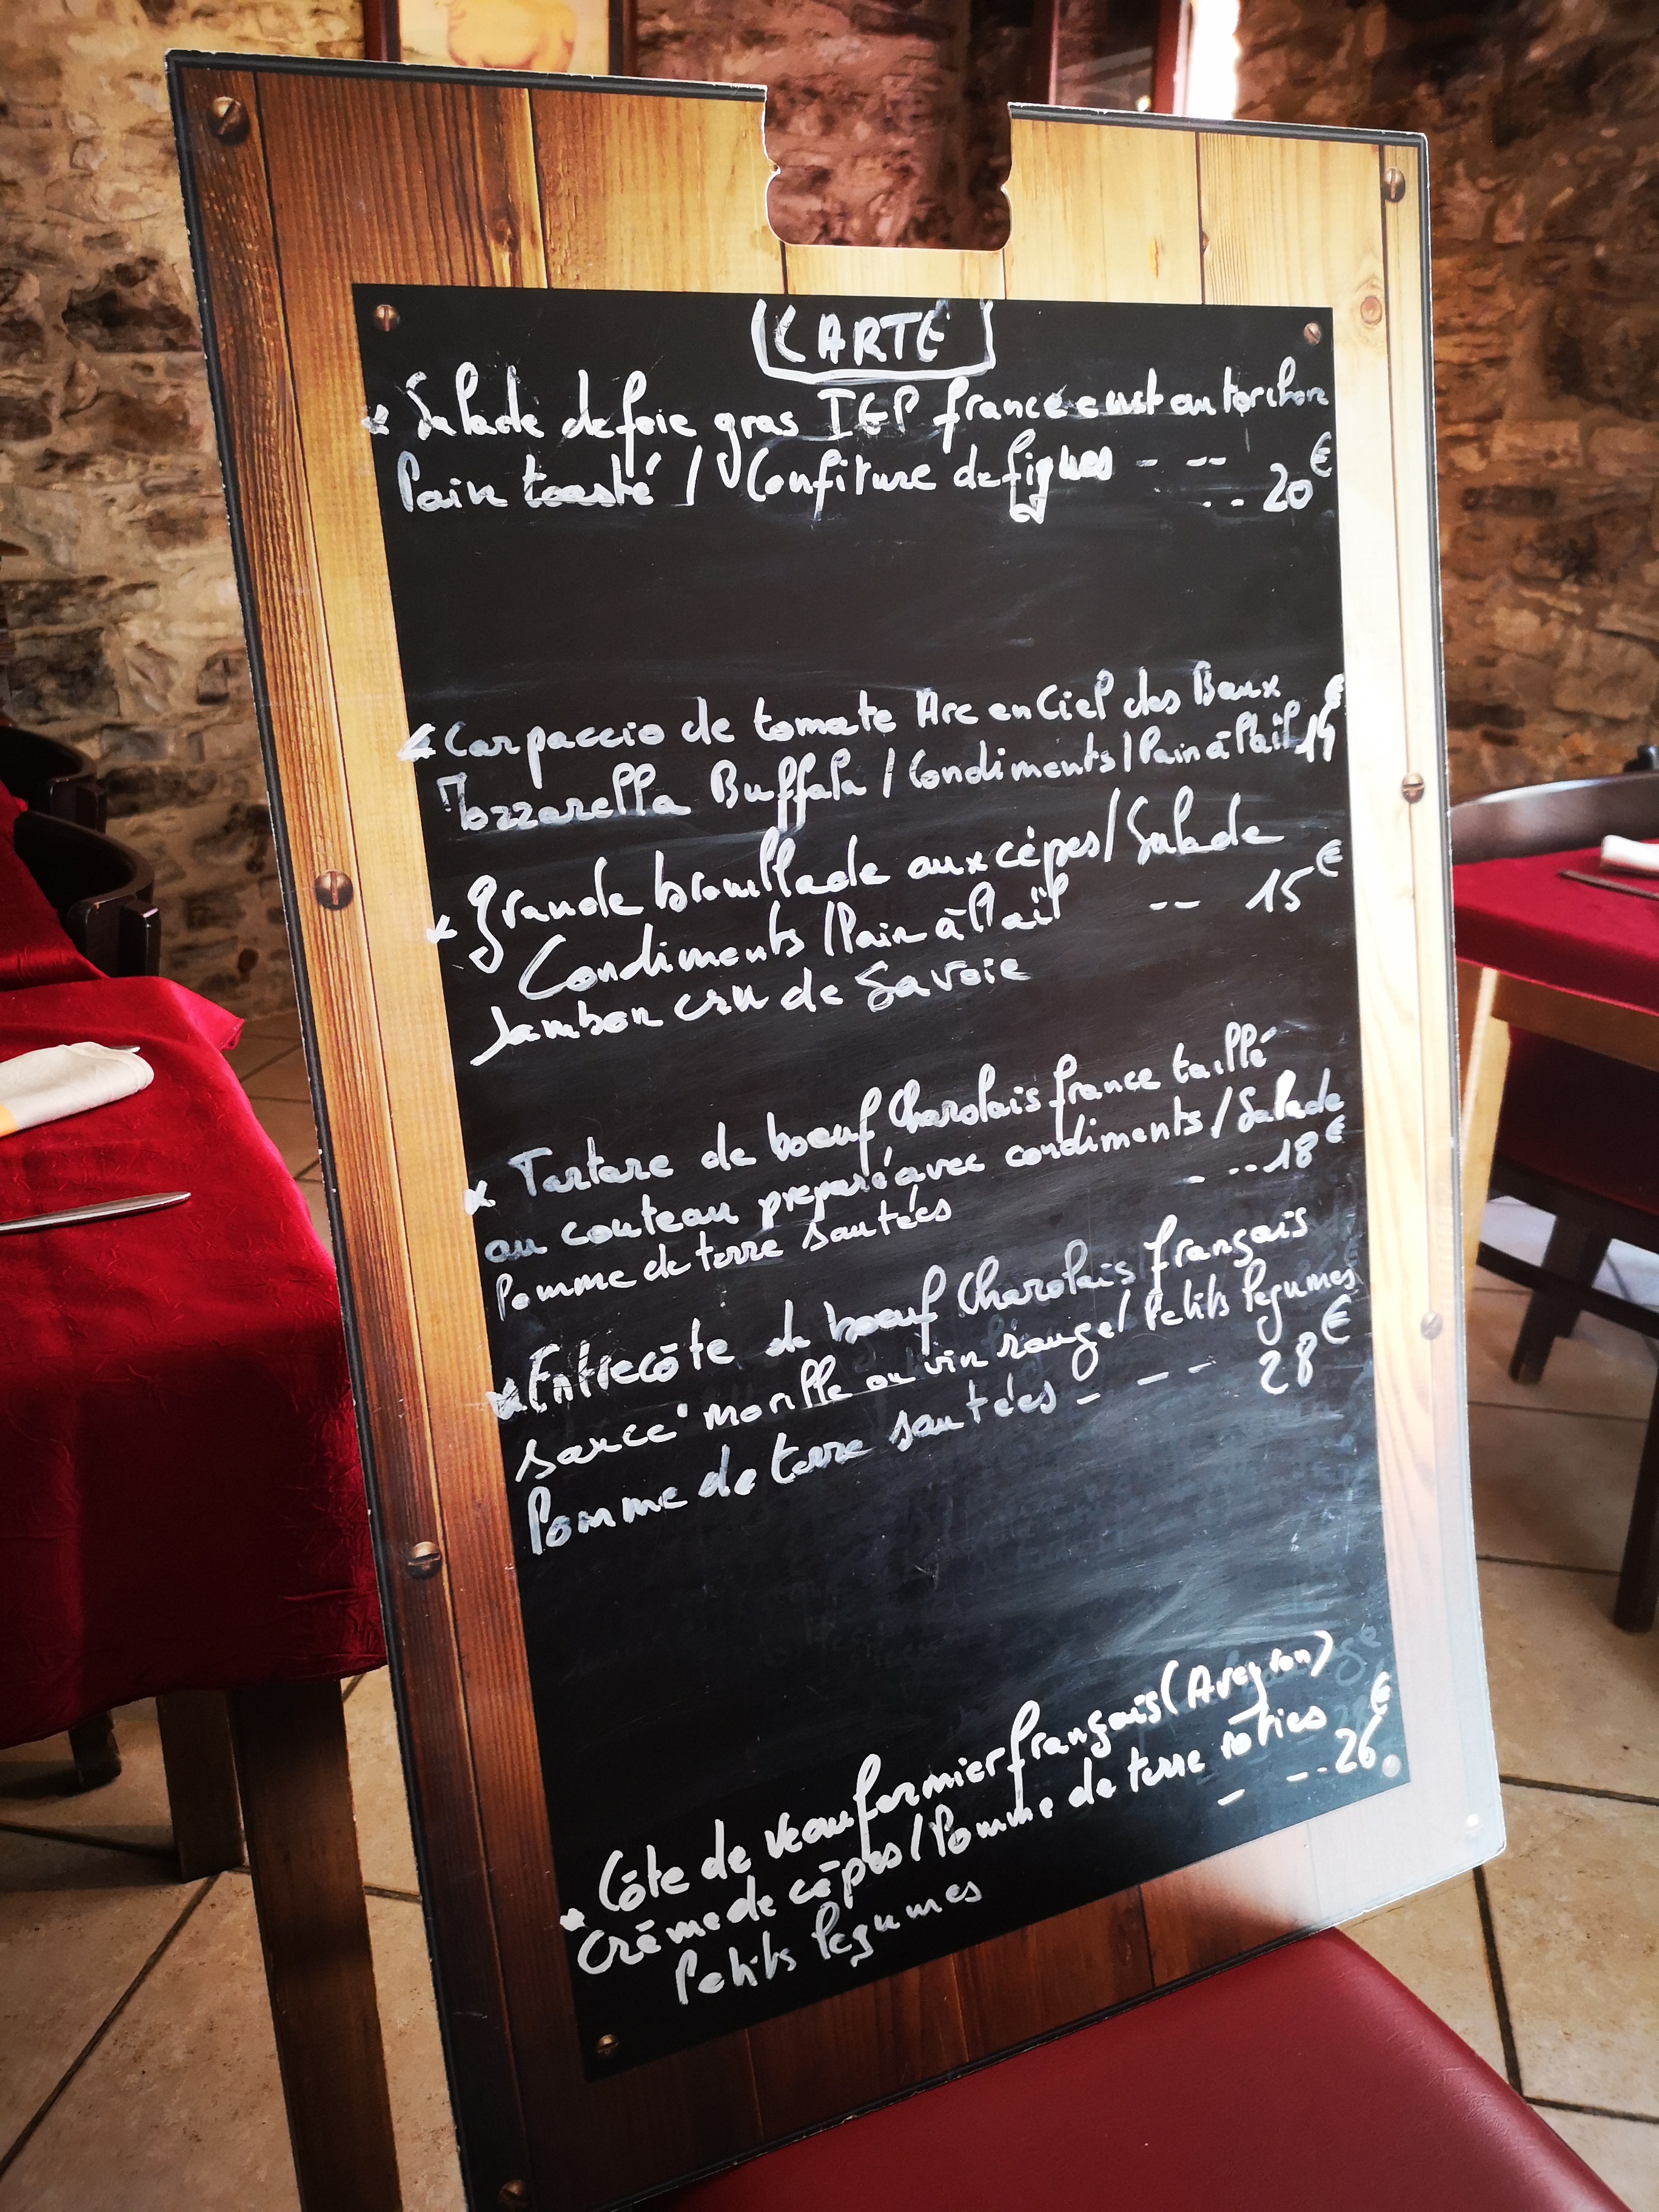 CARTE
* Salade de foie gras IGP france cuit au torchon
Pain toasté / Confiture de figues - -- -- 20€
* Carpaccio de tomate Arc en Ciel des Baux
Mozzarella Buffala / Condiments / Pain à l'ail 14€
* Grande brouillade aux cèpes / Salade
Condiments / Pain à l'ail -- 15€
Jambon cru de Savoie
* Tartare de boeuf Charolais france taillé
au couteau preparé avec condiments / Salade
Pomme de terre sautées - -- 18€
* Entrecôte de boeuf Charolais français
sauce morille ou vin rouge / Petits legumes
Pomme de terre sautées - - - 28€
* Côte de veau fermier français (Aveyron)
Crème de cèpes / Pomme de terre rôties
Petits legumes - -- 26€